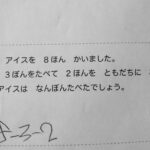 アイスを 8ほん かいました。
3ぼんをたべて 2ほんを ともだちに
アイスは なんぼんたべたでしょう。
-3-2